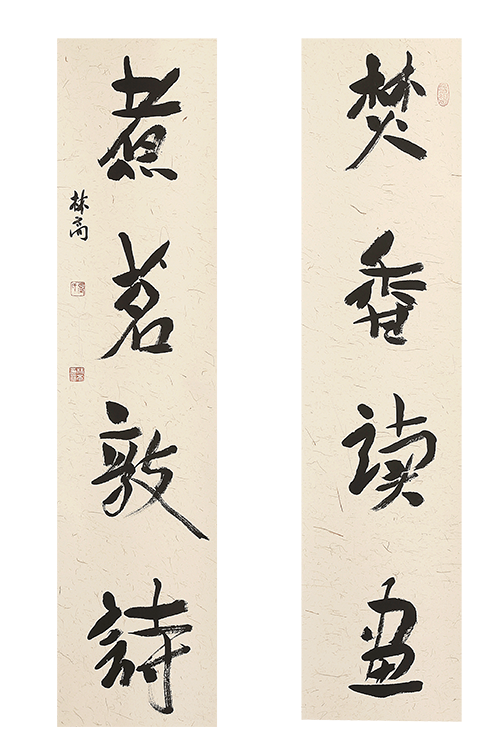 焚香读画
煮茗敦詩
林高